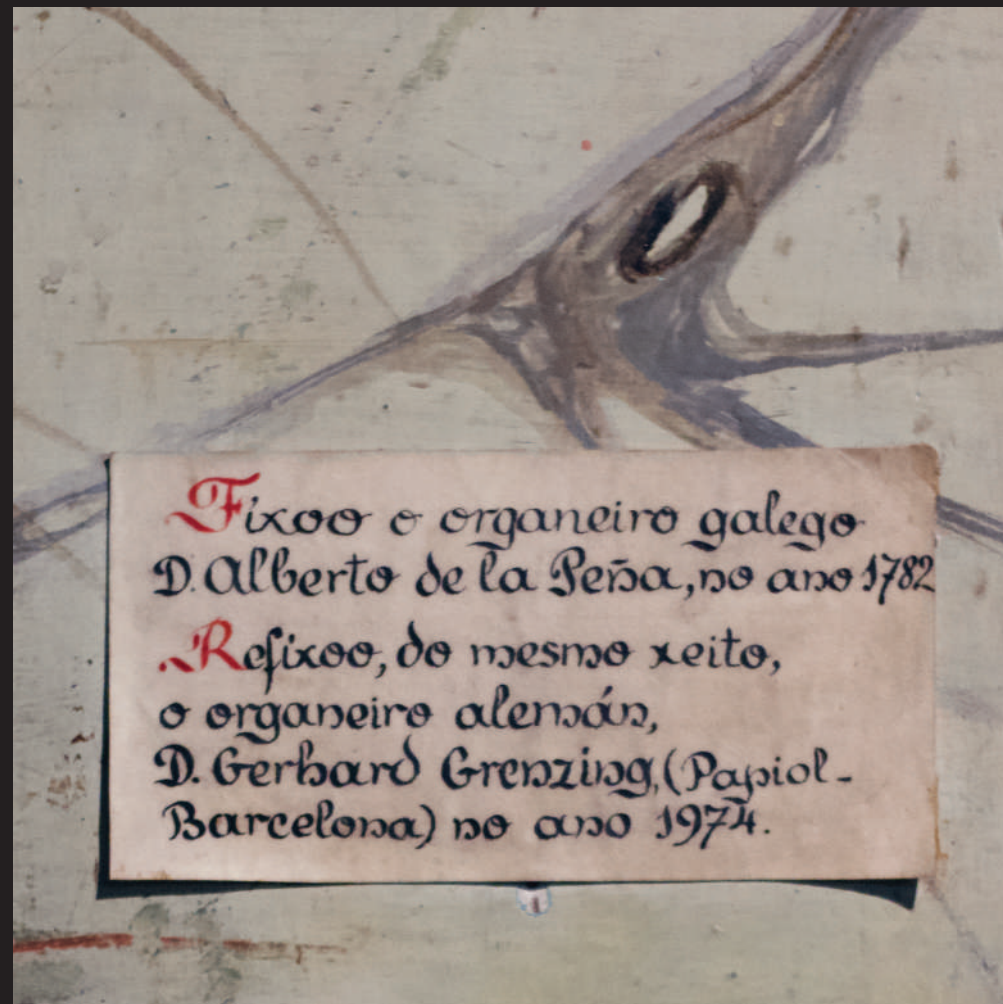 Fixoo o organeiro galego
D. Alberto de la Peña, no ano 1782
Refixoo, do mesmo xeito,
o organeiro alemán,
D. Gerhard Grenzing, (Papiol-
Barcelona) no ano 1974.